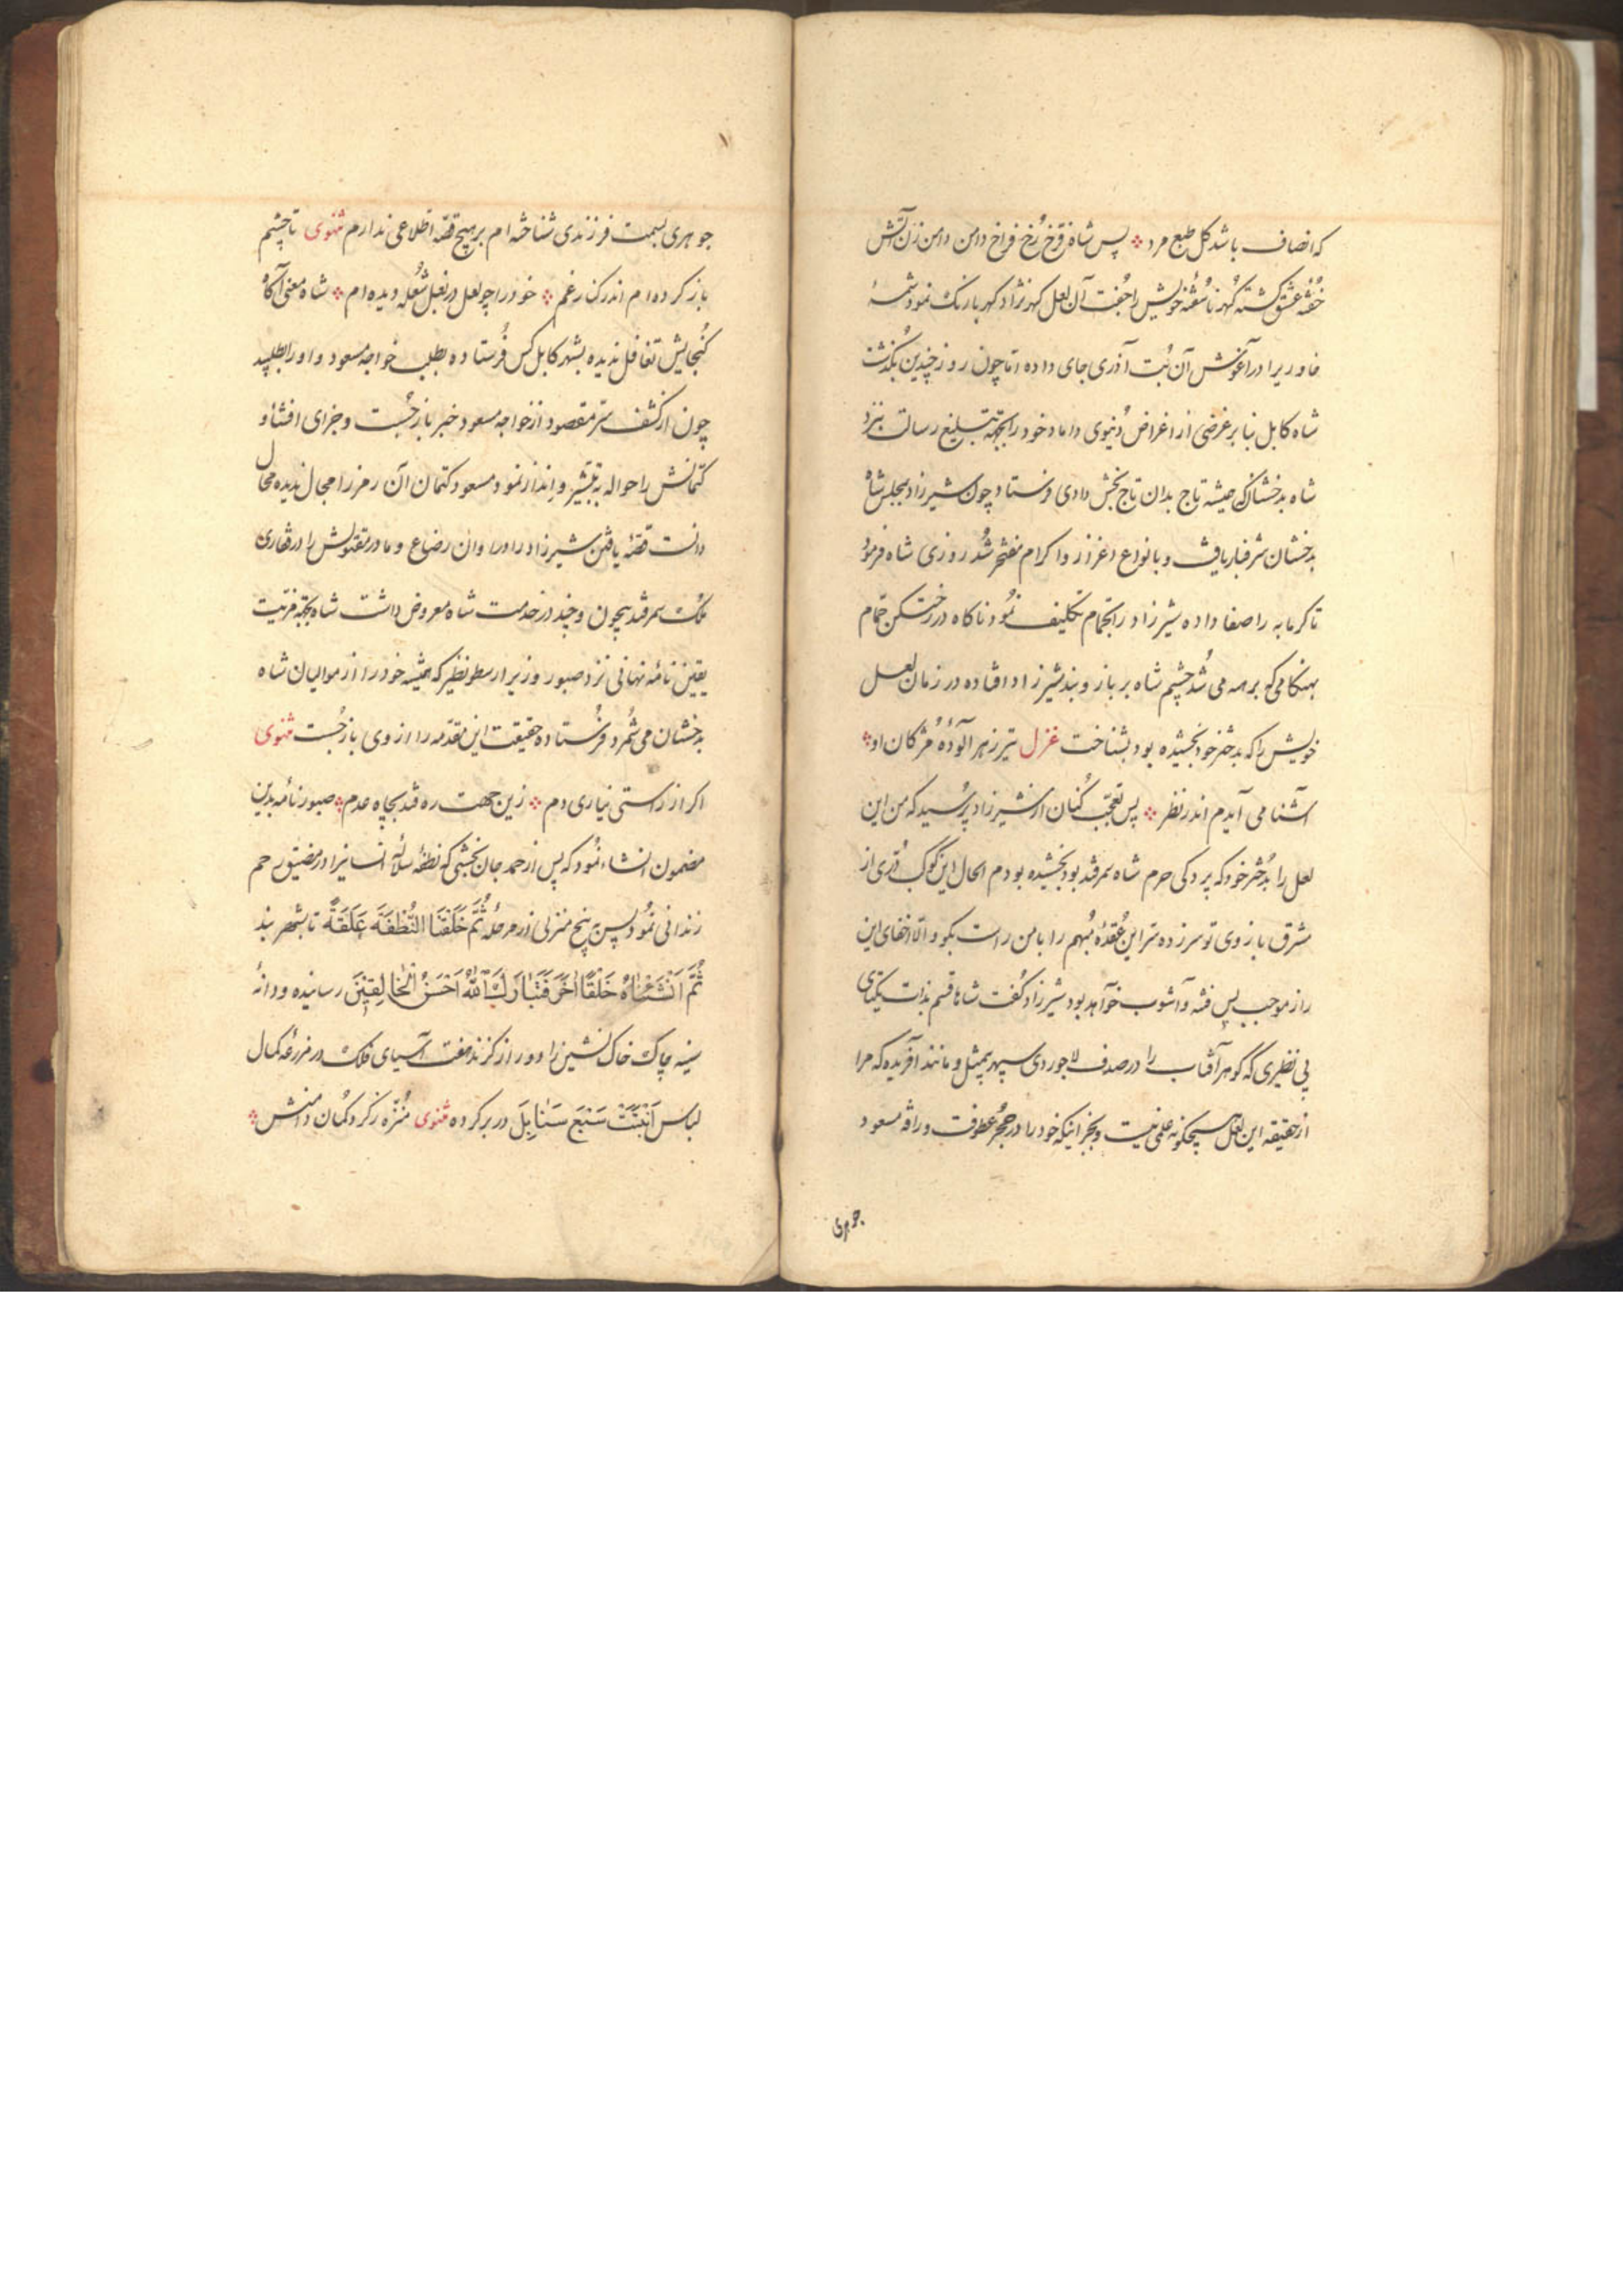 که انصاف باشد کل طبع مرد پس شاه فرخ رخ فراخ دامن دامن زن آتش
خفتهٔ عشق کشته کهر ناسفتهٔ خویش را جفت آن لعل کهر نژاد کهر بارنک نمود شمسهٔ
خاوریرا در آغوش آن بت آذری جای داده اما چون روز چندین بگذشت
شاه کابل بنابر غرضی از اغراض دنیوی داماد خود را بجهة تبلیغ رسالت بنزد
شاه بدخشان که همیشه تاج بدان تاج بخش دادی فرستاد چون شیرزاد بمجلس شاه
بدخشان شرفبار یافت و بانواع اعزاز و اکرام مفتخر شد روزی شاه فرمود
تا کرمابه را صفا داده شیرزاد را بحمام تکلیف نمود ناکاه در رختکن حمام
بهنکامی که برهمه می شد چشم شاه بر بازوبند شیرزاد افتاده در زمان لعل
خویش را که بدختر خود بخشیده بود بشناخت غزل تیر زهر آلودهٔ مژکان او
آشنا می آیدم اندر نظر پس تعجب کنان از شیرزاد پرسید که من این
لعل را بدختر خود که پردکی حرم شاه سمرقند بود بخشیده بودم الحال این کوکب دری از
مشرق بازوی تو سرزده سر این عقدهٔ مبهم را با من راست بکو والا اخفای این
راز موجب بس فتنه و آشوب خواهد بود شیرزاد کفت شاها قسم بذات یکتای
بی نظیری که کوهر آفتاب را در صدف لاجوردی سپهر بیمثل و مانند آفریده که مرا
از حقیقه این لعل هیچکونه علمی نیست و بجز اینکه خود را در حجر عطوفت و رافه مسعود
جوهری
جوهری بسمت فرزندی شناخته ام بر هیچ قصه اطلاعی ندارم مثنوی تا چشم
باز کرده ام اندر کنار غم خود را چو لعل در بغل شعله دیده ام شاه معنی آکاه
کنجایش تغافل ندیده بشهر کابل کس فرستاده بطلب خواجه مسعود و او را طلبید
چون از کشف سر مقصود از خواجه مسعود خبر باز جست و جزای افشا و
کتمانش را حواله به تبشیر و انذار نمود مسعود کتمان آن رمز را مجال ندیده محال
دانست قصهٔ یافتن شیرزاد را در اوان رضاع و مادر مقتولش را در قفاری
ملک سمرقند بیچون و چند در خدمت شاه معروض داشت شاه بجهة مزیت
یقین نامهٔ نهانی نزد صبور وزیر ارسطو نظیر که همیشه خود را از موالیان شاه
بدخشان می شمرد فرستاده حقیقت این مقدمه را از وی باز جست مثنوی
اکر از راستی نیاری دم زین جهت ره فتد بچاه عدم صبور نامه بدین
مضمون انشاء نمود که پس از حمد جان بخشی که نطفهٔ سلالهٔ انسانیرا در مضیق رحم
زندانی نمود پس پنج منزلی از مرحلهٔ ثُمَّ خَلَقْنَا النُّطْفَةَ عَلَقَةً تا بشهر بند
ثُمَّ اَنْشَاْنَاهُ خَلْقًا آخَرَ فَتَبَارَكَ اللّٰهُ اَحْسَنُ الْخَالِقِينَ رسانیده و دانهٔ
سینه چاک خاک نشین را دور از کزند هفت آسیای فلک در مزرعهٔ کمال
لباس اَنْبَتَتْ سَبْعَ سَنَابِلَ در بر کرده مثنوی منزه ز کرد کمان دامنش